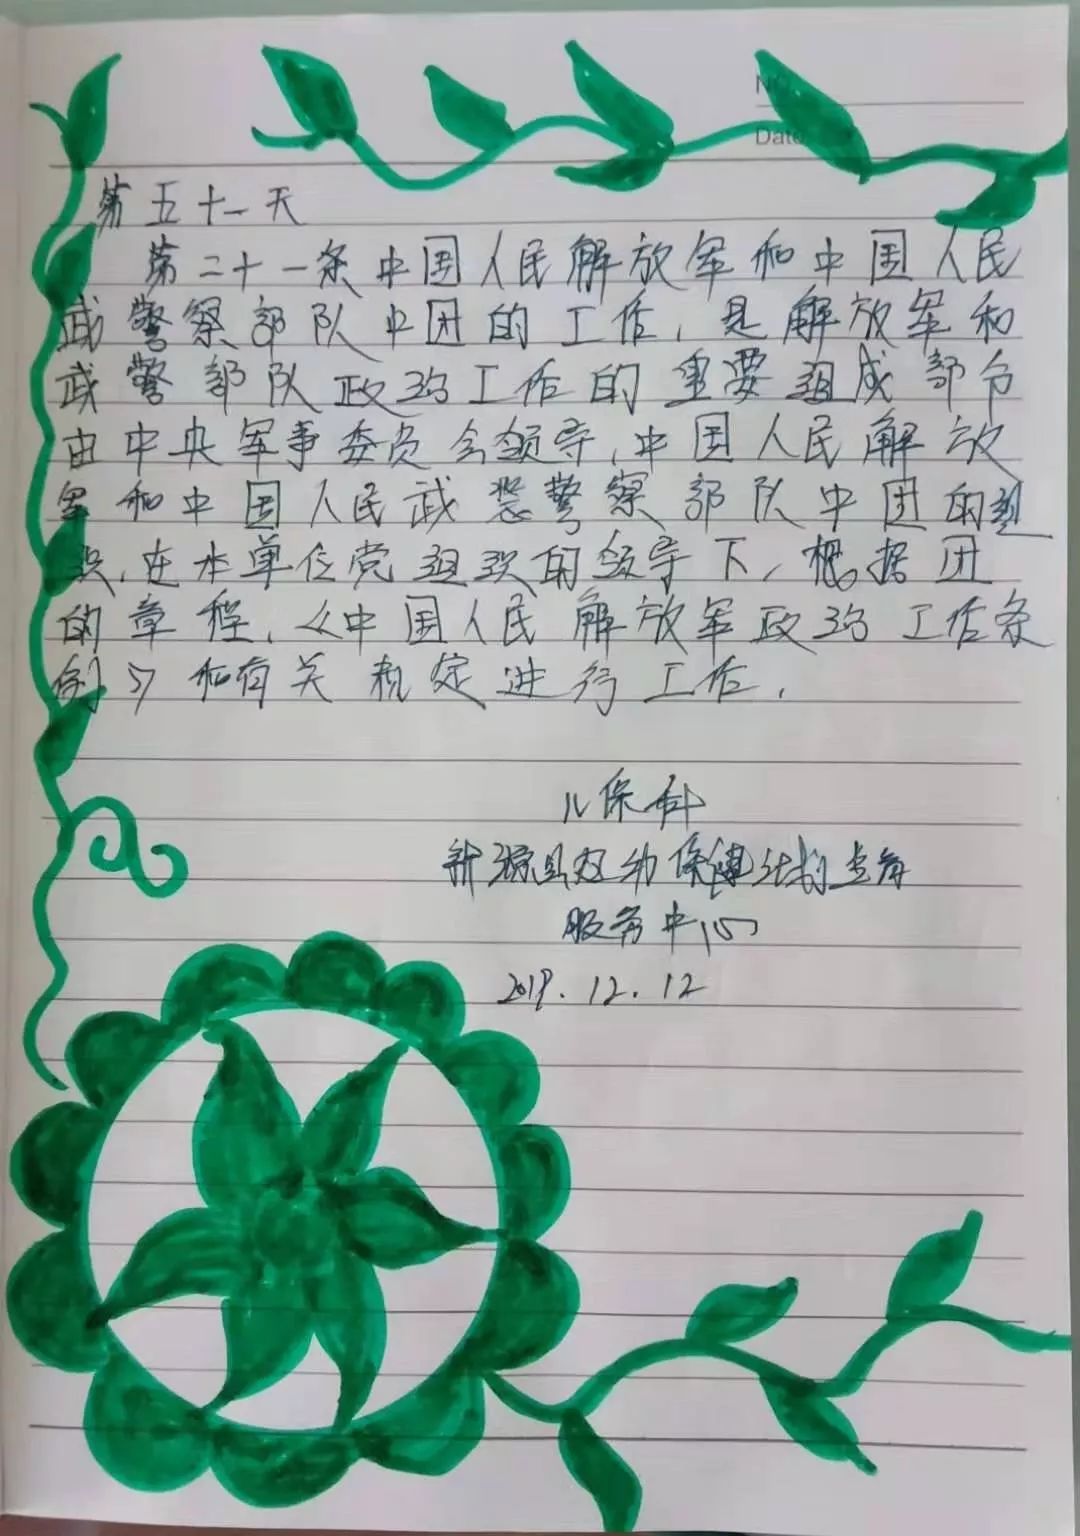 NO.
Date
第五十一天
第二十一条中国人民解放军和中国人民
武警察部队中团的工作,是解放军和
武警部队政治工作的重要组成部分
由中央军事委员会领导,中国人民解放
军和中国人民武装警察部队中团的组
织,在本单位党组织的领导下,根据团
的章程,《中国人民解放军政治工作条
例》和有关规定进行工作.
儿保科
新源县妇幼保健计划生育
服务中心
2019.12.12